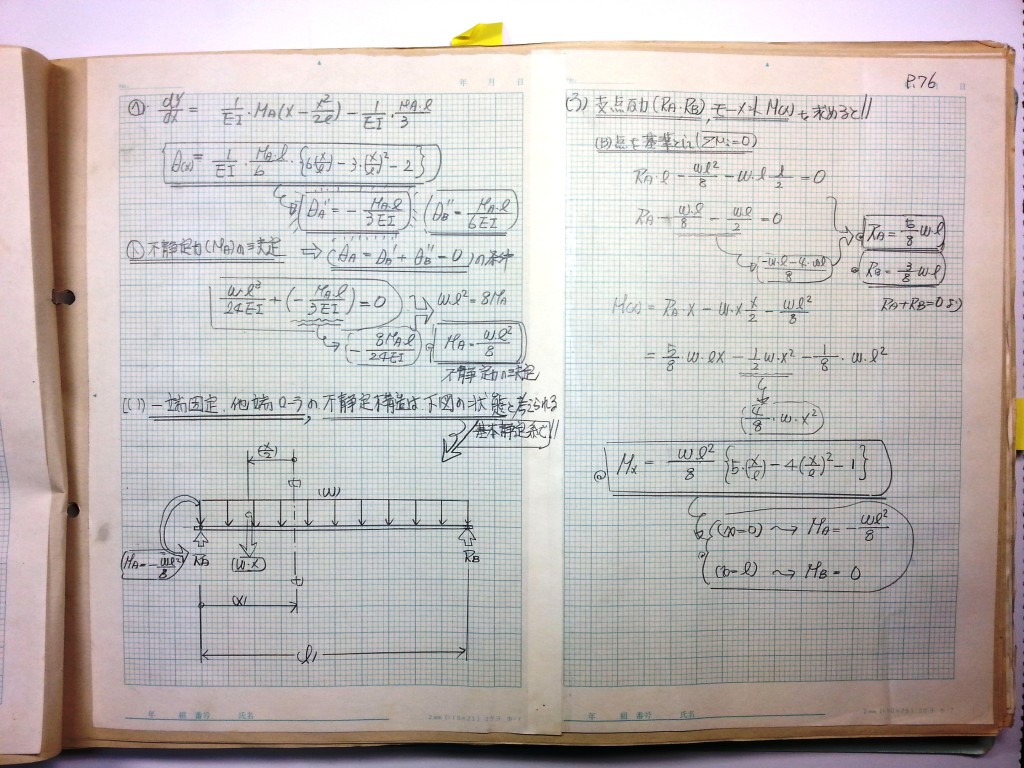 年 月 日
P.76
dy/dx = 1/EI・MA(x − x²/2ℓ) − 1/EI・MA・ℓ/3
θ(x) = 1/EI・MA・ℓ/6・{6(x/ℓ) − 3・(x/ℓ)² − 2}
θA″ = − MA・ℓ/3EI
θB″ = MA・ℓ/6EI
不静定力(MA)の決定 ⇒ (θA = θA′ + θA″ = 0)の条件
w・ℓ³/24EI + (− MA・ℓ/3EI) = 0
wℓ² = 8MA
− 8MAℓ/24EI
MA = w・ℓ²/8
不静定力の決定
一端固定、他端ローラの不静定構造は下図の状態と考えられる
基本静定系で//
(x/2)
(w)
MA = − wℓ²/8
RA
(w・x)
RB
(x)
(ℓ)
年 組 番号 氏名
(3) 支点反力(RA.RB), モーメント M(x)を求めると//
(B)点を基準として(ΣMi=0)
RA・ℓ − wℓ²/8 − w・ℓ・ℓ/2 = 0
RA − w・ℓ/8 − wℓ/2 = 0
−w・ℓ−4・wℓ/8
RA = 5/8 w・ℓ
RB = 3/8 wℓ
RA+RB=0より
M(x) = RA・x − w・x・x/2 − wℓ²/8
= 5/8 w・ℓx − 1/2 w・x² − 1/8・w・ℓ²
(4/8・w・x²)
Mx = wℓ²/8 {5・(x/ℓ) − 4(x/ℓ)² − 1}
(x=0) → MA = − wℓ²/8
(x=ℓ) → MB = 0
年 組 番号 氏名